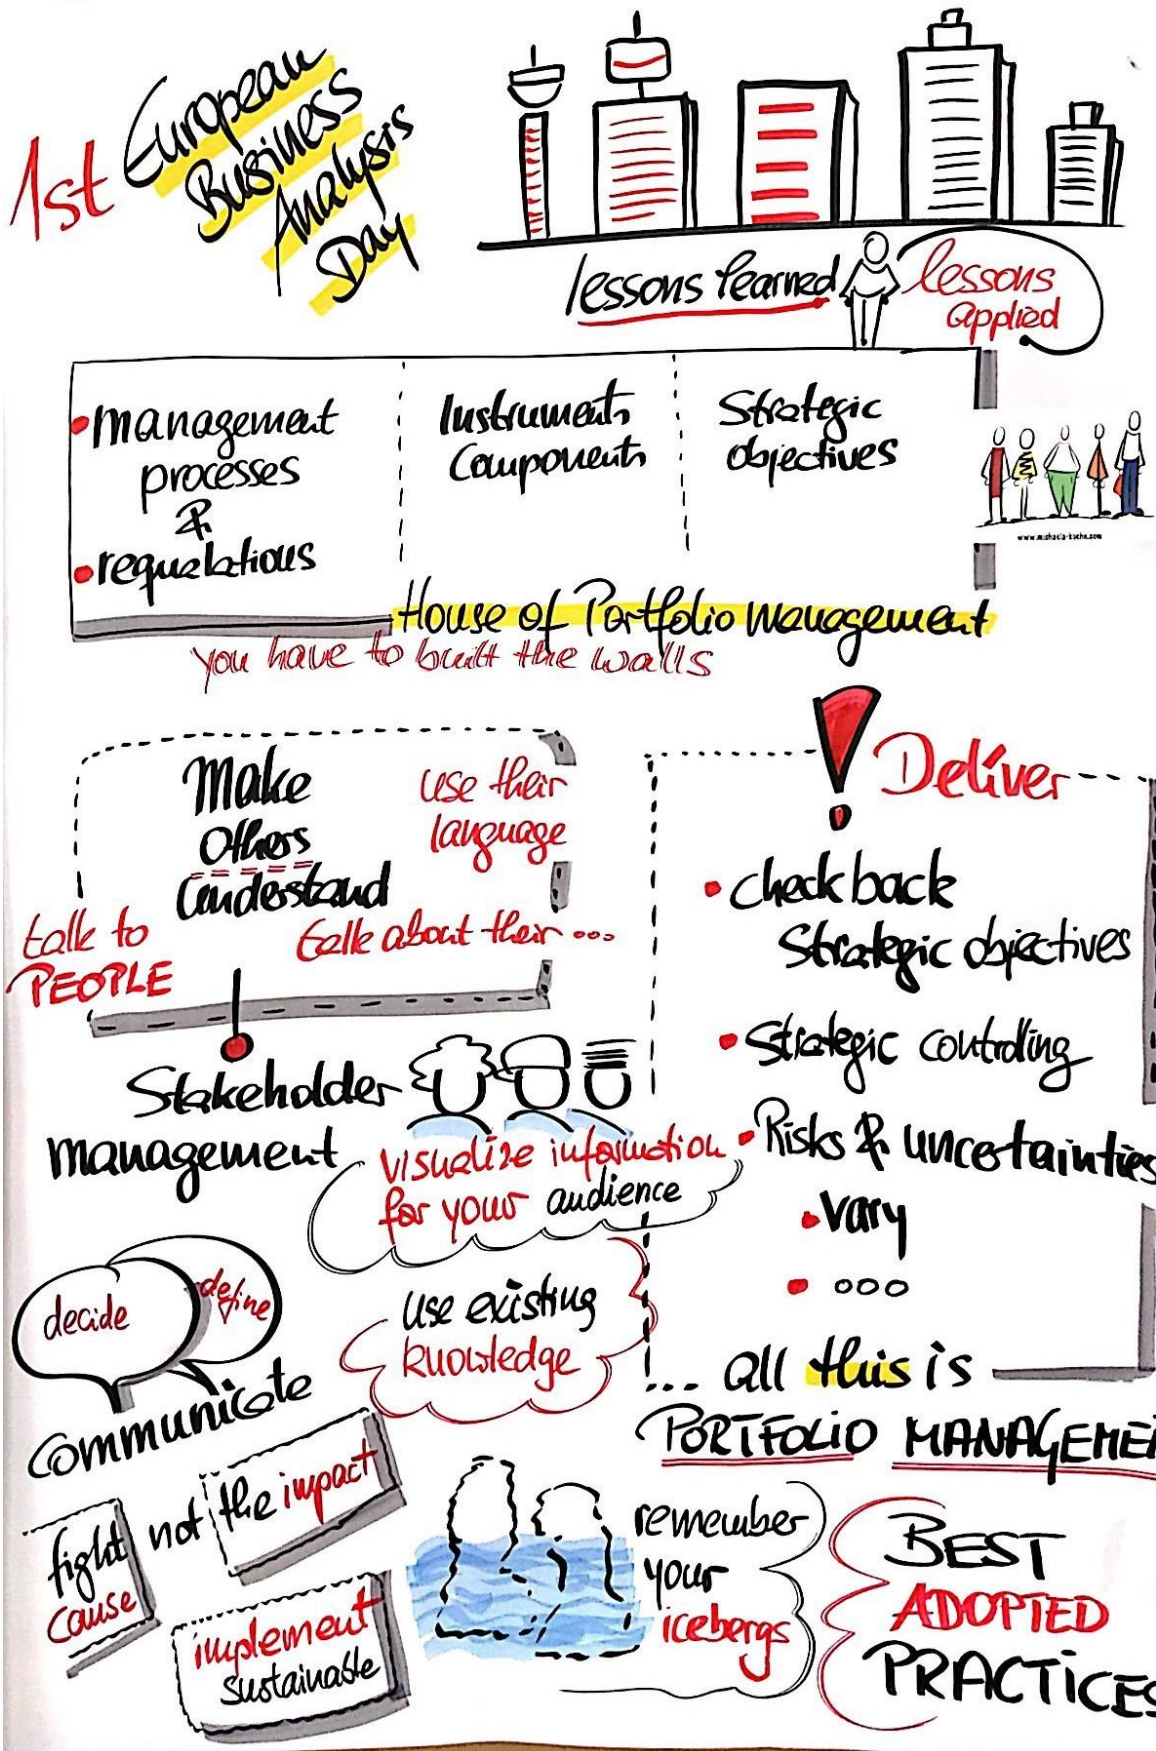 1st European
Business
Analysis
Day
lessons learned
lessons
applied
• management
processes
&
• requelations
Instruments
Components
Strategic
objectives
www.michaela-kuchn.com
House of Portfolio management
you have to built the walls
Make
Others
Understand
use their
language
talk to
PEOPLE
talk about their ...
Stakeholder
management
visualize information
for your audience
decide
define
communicate
use existing
knowledge
fight
cause
not the impact
implement
sustainable
! Deliver
• check back
Strategic objectives
• Strategic controlling
• Risks & uncertainties
• vary
• ooo
... all this is
PORTFOLIO MANAGEMEN
remember
your
icebergs
BEST
ADOPTED
PRACTICES